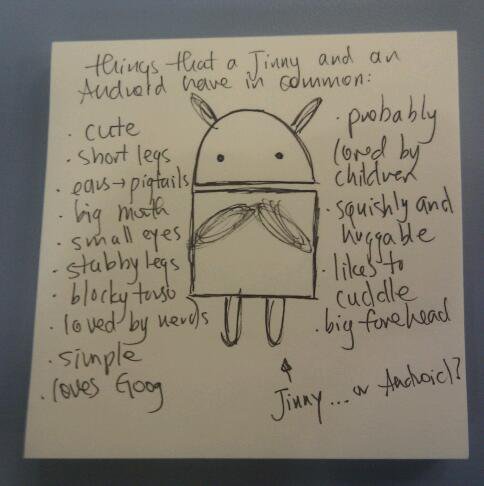 things that a Jinny and an
Android have in common:
· cute
· short legs
· ears → pigtails
· big mouth
· small eyes
· stubby legs
· blocky torso
· loved by nerds
· simple
· loves Goog
· probably
loved by
children
· squishly and
huggable
· likes to
cuddle
· big forehead
Jinny ... or Android?